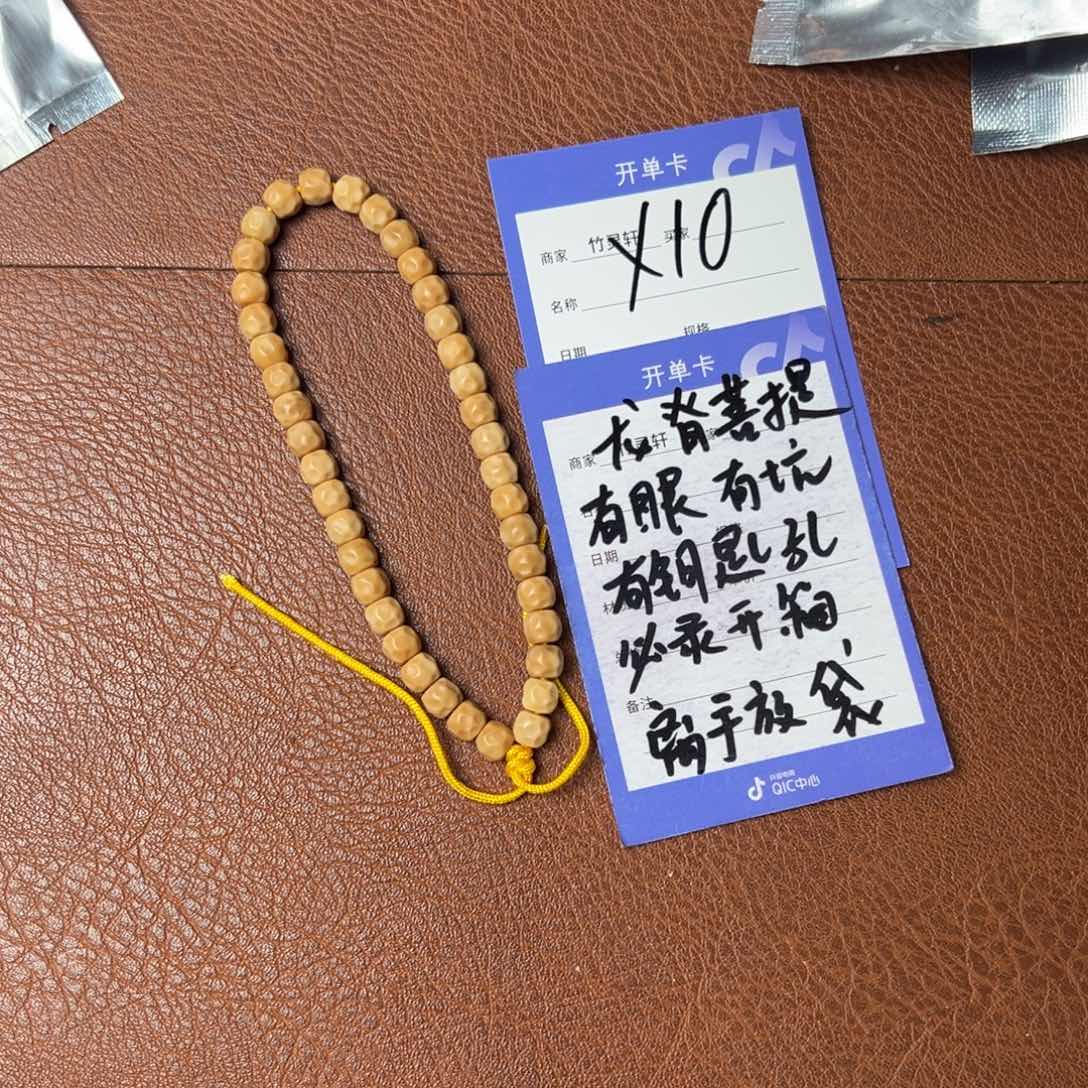 开单卡
X10
商家 竹灵轩 买家
名称
规格
日期
开单卡
龙脊菩提
商家 灵轩
有眼 有坑
日期
有钥匙孔
必录开箱,
备注
离手放袋
抖音电商
QIC中心